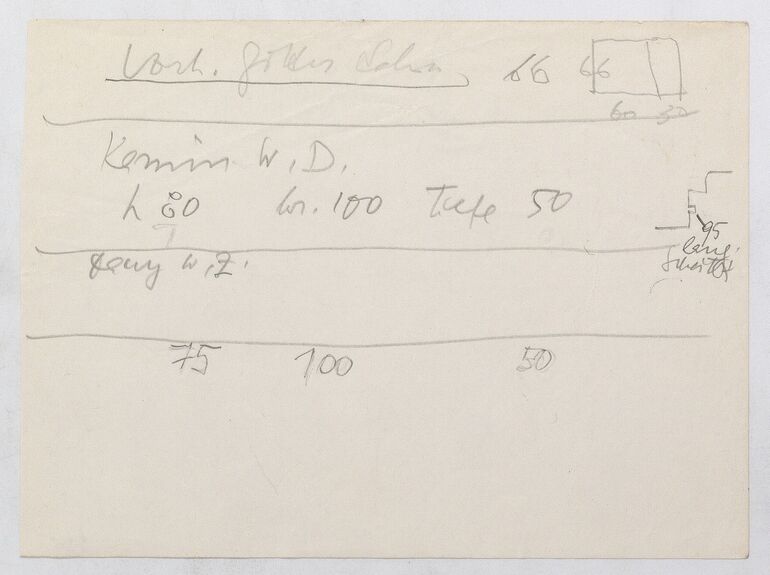 Vorh. 66 66
60 30
Kamin W.D.
h 80 br. 100 Tiefe 50
95
lang.
W.Z.
75 100 50